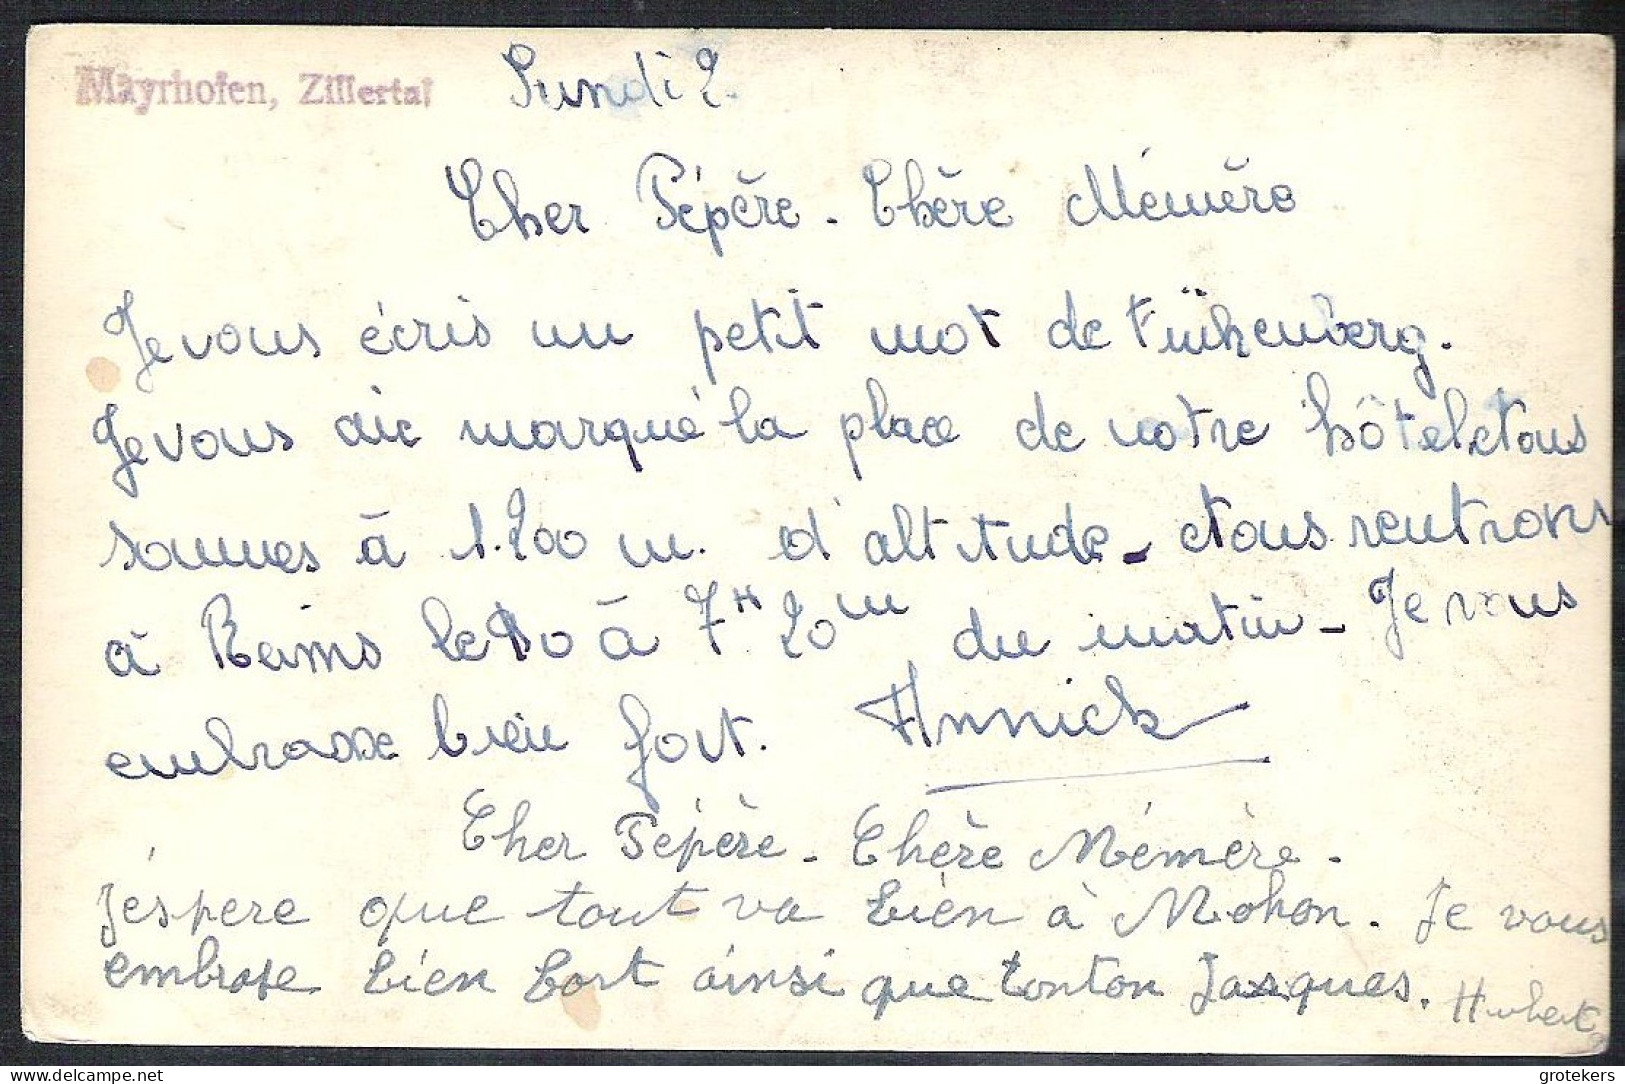 Mayrhofen, Zillertal
Lundi 2.
Cher Pépère - Chère Mémère
Je vous écris un petit mot de Fuïkenberg.
Je vous aie marqué la place de notre hôtel. Nous
sommes à 1.200 m. d'altitude - Nous rentrons
à Reims le 10 à 7H 20m du matin - Je vous
embrasse bien fort. Annick
Cher Pépère - Chère Mémère -
J'éspere que tout va bien à Mohon. Je vous
embrase bien fort ainsi que tonton Jasques. Hubert
grotekers
delcampe.net